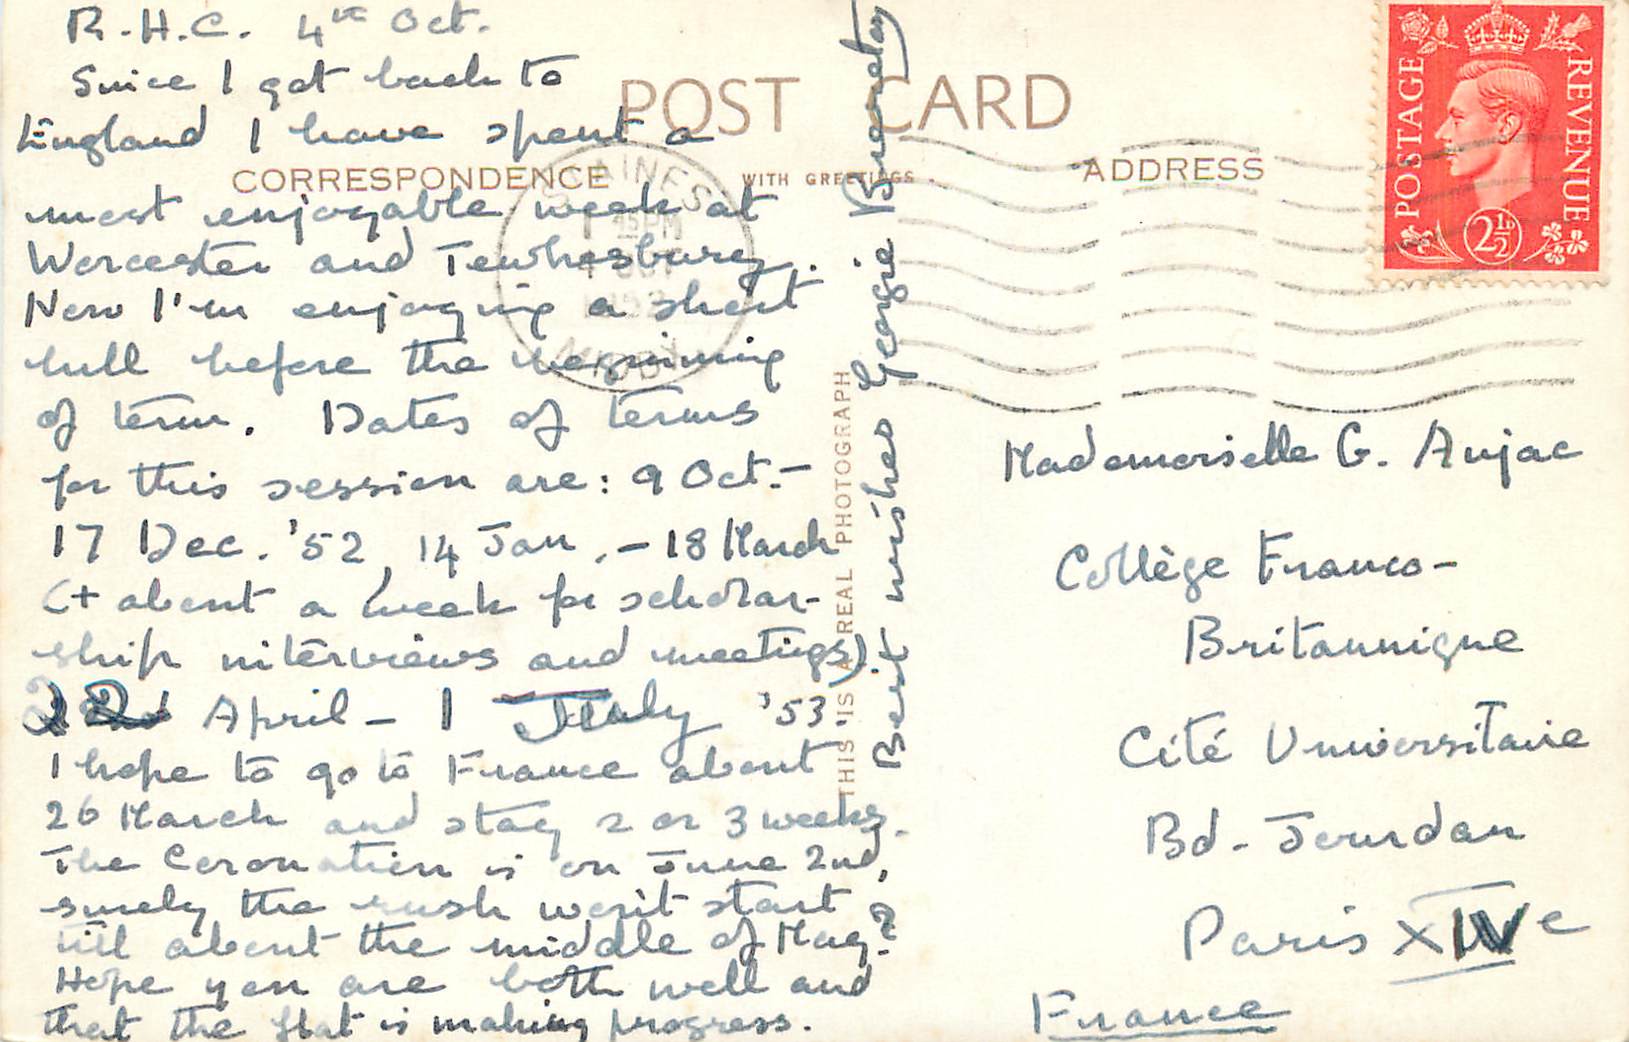 R.H.C. 4th Oct.
Since I got back to
England I have spent a
most enjoyable week at
Worcester and Tewkesbury.
Now I'm enjoying a short
lull before the beginning
of term. Dates of terms
for this session are: 9 Oct. -
17 Dec. '52, 14 Jan. - 18 March
(+ about a week for scholar-
ship interviews and meetings)
22 April - 1 July '53.
I hope to go to France about
26 March and stay 2 or 3 weeks.
The Coronation is on June 2nd,
surely the rush won't start
till about the middle of May?
Hope you are both well and
that the flat is making progress.
Best wishes Georgie
POST CARD
CORRESPONDENCE
WITH GREETINGS.
ADDRESS
THIS IS A REAL PHOTOGRAPH
STAINES
15 PM
4 OCT
1952
MIDDX
POSTAGE
REVENUE
2½D
Mademoiselle G. Aujac
Collège Franco-
Britannique
Cité Universitaire
Bd. Jourdan
Paris XIVe
France